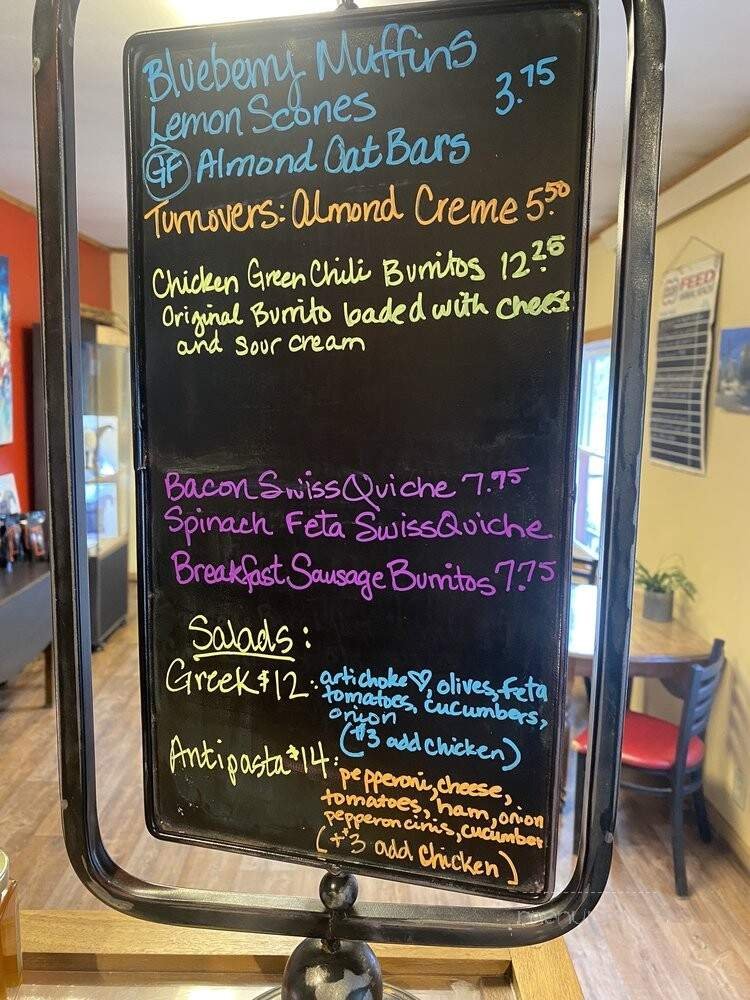 Blueberry Muffins
Lemon Scones 3.75
GF Almond Oat Bars
Turnovers: Almond Creme 5.50
Chicken Green Chili Burritos 12.25
Original Burrito loaded with cheese
and sour cream
Bacon Swiss Quiche 7.75
Spinach Feta Swiss Quiche
Breakfast Sausage Burritos 7.75
Salads:
Greek $12: artichoke ♡, olives, feta
tomatoes, cucumbers,
onion
($3 add chicken)
Antipasta $14: pepperoni, cheese,
tomatoes, ham, onion
pepperoncinis, cucumber
(+$3 add chicken)
FEED